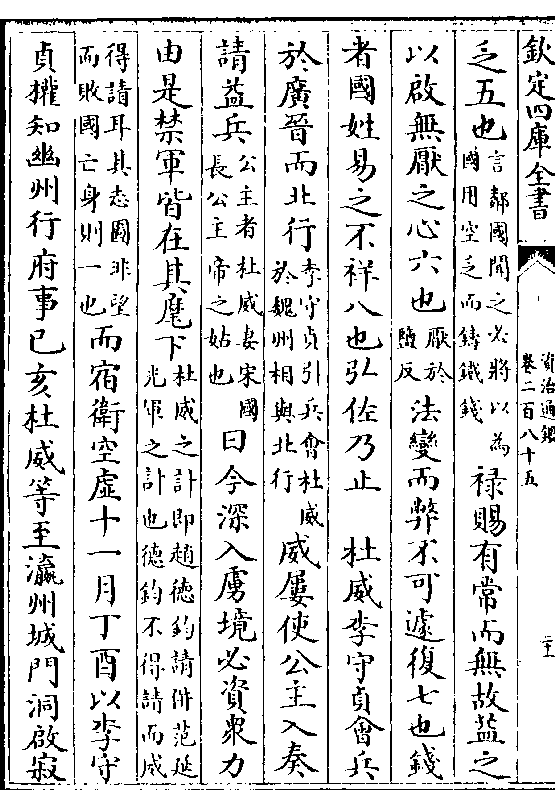 欽定四庫全書
資治通鑑
卷二百八十五
乏五也言鄰國聞之必將以為國用空乏而鑄鐵錢祿賜有常而無故益之
以啟無厭之心六也厭於鹽反法變而弊不可遽復七也錢
者國姓易之不祥八也弘佐乃止 杜威李守貞會兵
於廣晉而北行李守貞引兵會杜威於魏州相與北行威屢使公主入奏
請益兵公主者杜威妻宋國長公主帝之姑也曰今深入虜境必資衆力
由是禁軍皆在其麾下杜威之計即趙德鈞請併范延光軍之計也德鈞不得請而威
得請耳其志圖非望而敗國亡身則一也而宿衛空虛十一月丁酉以李守
貞權知幽州行府事已亥杜威等至瀛州城門洞啟寂